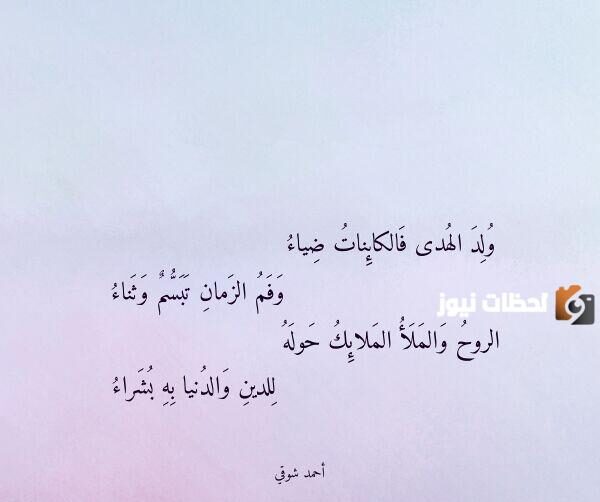 وُلِدَ الهُدى فَالكائِناتُ ضِياءُ
وَفَمُ الزَمانِ تَبَسُّمٌ وَثَناءُ
لحظات نيوز
الروحُ وَالمَلَأُ المَلائِكُ حَولَهُ
لِلدينِ وَالدُنيا بِهِ بُشَراءُ
أحمد شوقي